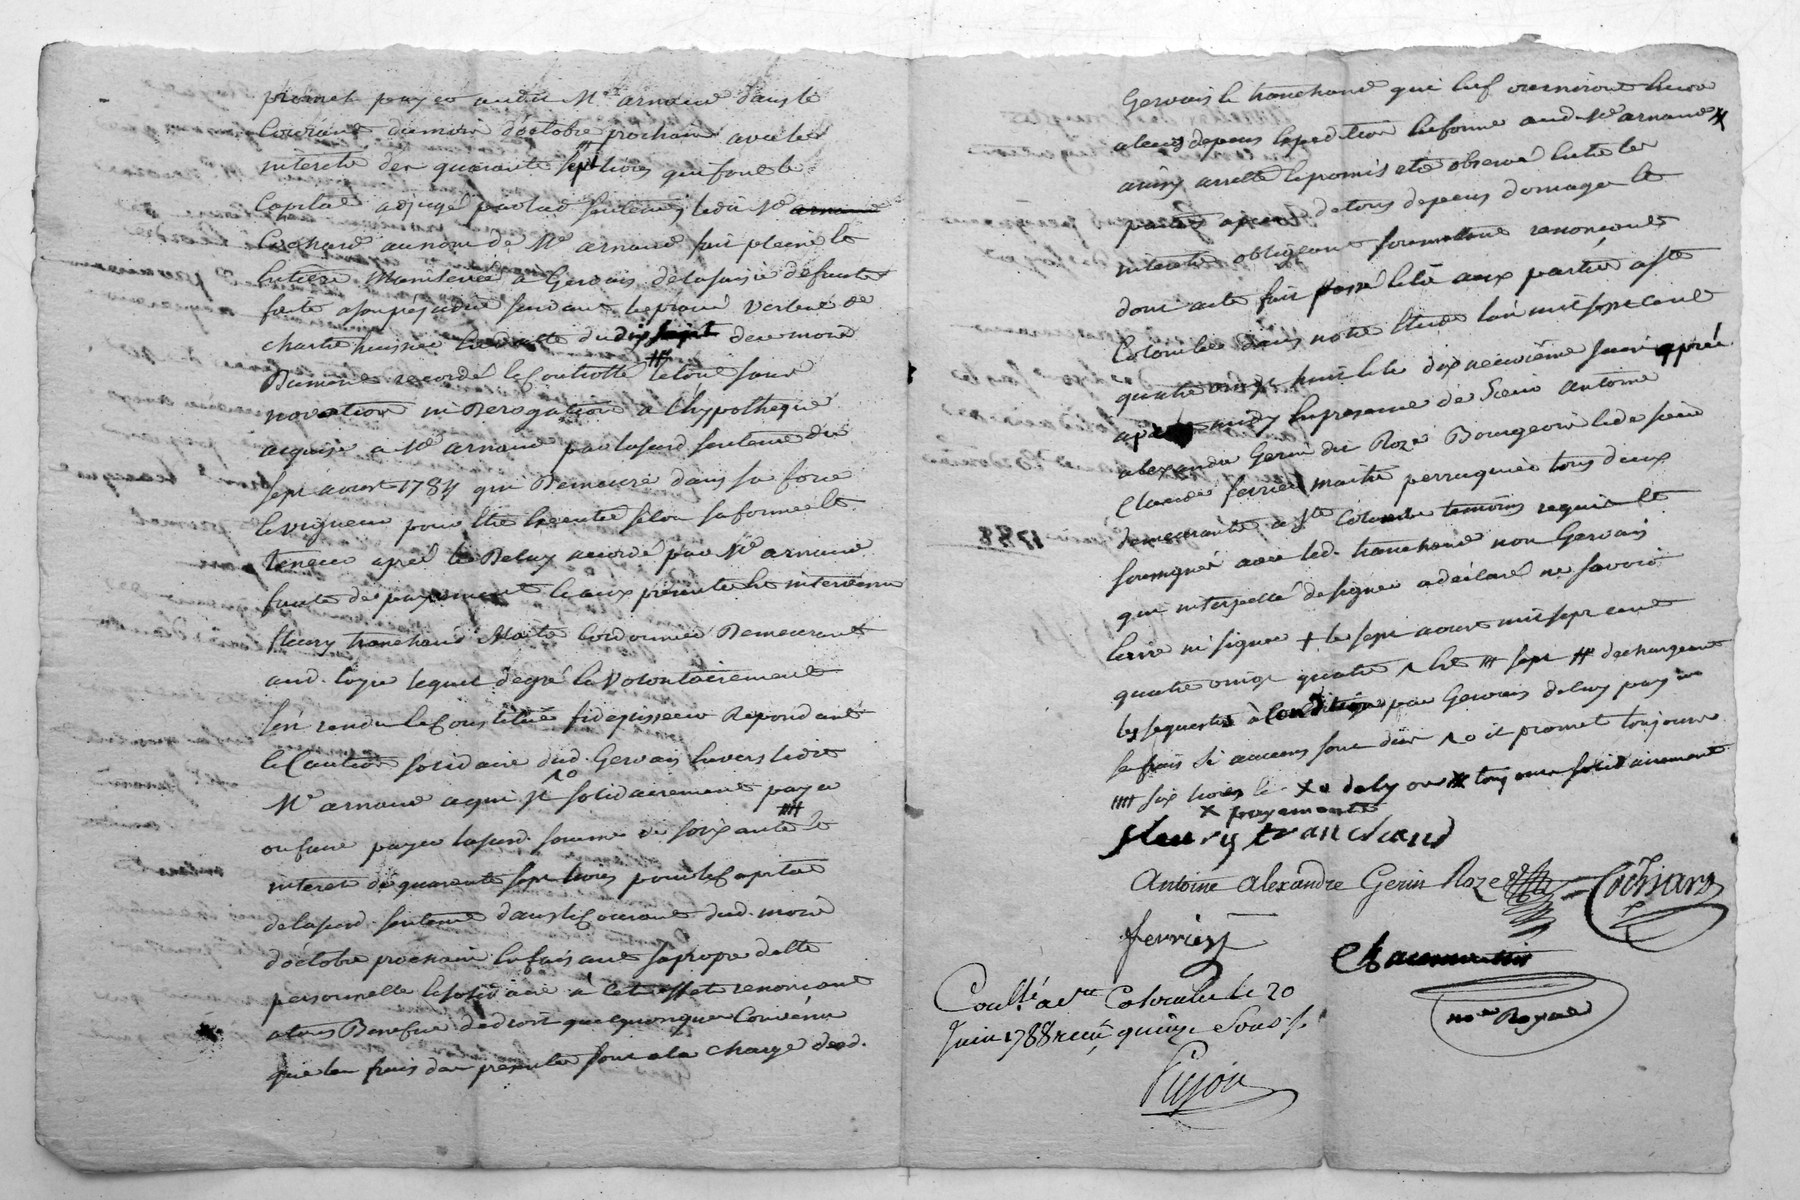 promet payer audit Me arnaud dans le
Courant du mois d'octobre prochain avec les
interets des quarante sept livres qui font le
Capital adjugé par lad. sentence, ledit Me arnaud
Cochard au nom de Me arnaud fait pleine et
entiere Mainlevée à Gervais de la saisie de fruits
faite a son préjudice suivant le procé verbal de
chartre huissier en datte du dix sept de ce mois
Dument recordé et Controllé # le tout sans
novation ni Derogation a l'hypotheque
acquise a Me arnaud par lasusd. sentence du
sept aoust 1784 qui Demeure dans sa force
et vigueur pour etre executée selon sa forme et
teneur apré le Delay accordé par Me arnaud
faute de payement et aux présentes est intervenu
fleury tranchand Maitre Cordonnier Demeurant
aud. loyre lequel de gré et Volontairement
s'en rendu et Constitué fidejusseur Repondant
et Caution solidaire dud. Gervais envers ledit
Me arnaud a qui solidairement payer
ou faire payer lasusd. somme de soixante #### et
interet de quarante sept livres pour le Capital
de lasusd. sentence dans le Courant dud. mois
d'octobre prochain en faisant sa propre dette
personnelle et solidaire à cet effet renonçant
a tous Benefice de droit quelquonque Convenu
que les frais des presentes sont a la charge desd.
Gervais et tranchand qui en fourniront encore
a leurs depens expedition en forme aud. Me arnaud
ainsy arretté et promis eté observé entre les
parties a peine de tous depens domages et
interets obligeant soumettant renonçant
dont acte fait passé et lu aux parties a Ste
Colombe dans notre etude l'an mil sept cent
quatre vingt huit et le dix neuvième juin apré
midy en presence de Sieur antoine
alexandre Gerin dit Roze Bourgeois et de sieur
Claude ferrier maitre perruquier tous deux
demeurants a Ste Colombe temoins requis et
soussignés avec led. tranchand non Gervais
qui interpellé de signer a déclaré ne savoir
ecrire ni signer + le sept aoust mil sept cent
quatre vingt quatre sept # dechargeant
les sequestres à condition par Gervais de luy payer
se frais si aucuns sont dus il promet toujours
#### six livres le delay
x payements
fleury tranchand
Antoine Alexandre Gerin Roze Cochard
ferrier
Chaumartin
nore Royal
Coullé a Ste Colombe le 20
Juin 1788 reçu quinze Sous
Pujon
1788